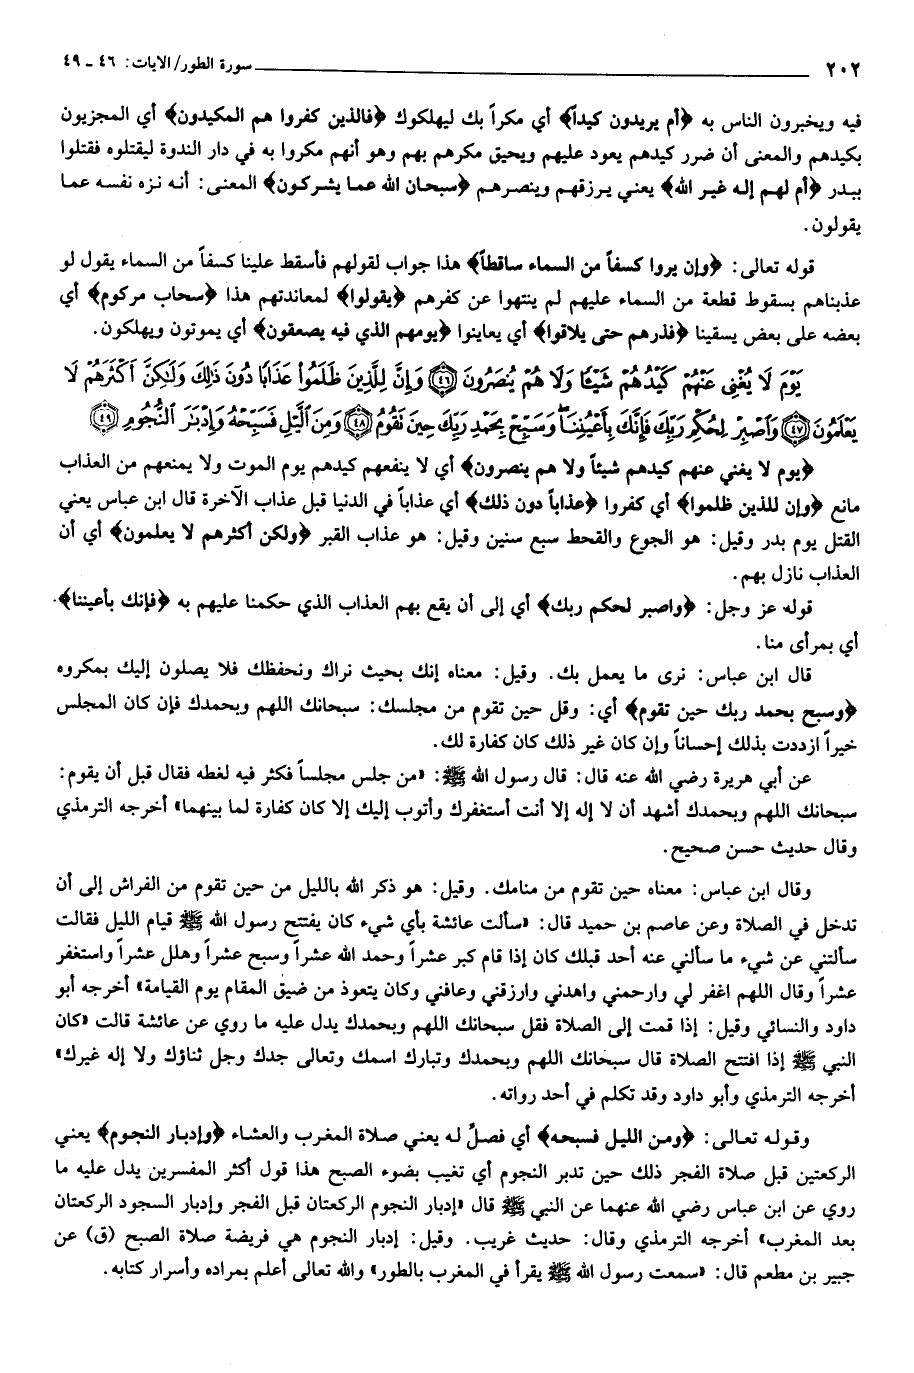 ٢٠٢ سورة الطور/ الآيات: ٤٦ ـ ٤٩
فيه ويخبرون الناس به ﴿أم يريدون كيداً﴾ أي مكراً بك ليهلكوك ﴿فالذين كفروا هم المكيدون﴾ أي المجزيون
بكيدهم والمعنى أن ضرر كيدهم يعود عليهم ويحيق مكرهم بهم وهو أنهم مكروا به في دار الندوة ليقتلوه فقتلوا
ببدر ﴿أم لهم إله غير الله﴾ يعني يرزقهم وينصرهم ﴿سبحان الله عما يشركون﴾ المعنى: أنه نزه نفسه عما
يقولون.
قوله تعالى: ﴿وإن يروا كسفاً من السماء ساقطاً﴾ هذا جواب لقولهم فأسقط علينا كسفاً من السماء يقول لو
عذبناهم بسقوط قطعة من السماء عليهم لم ينتهوا عن كفرهم ﴿يقولوا﴾ لمعاندتهم هذا ﴿سحاب مركوم﴾ أي
بعضه على بعض يسقينا ﴿فذرهم حتى يلاقوا﴾ أي يعاينوا ﴿يومهم الذي فيه يصعقون﴾ أي يموتون ويهلكون.
يَوْمَ لَا يُغْنِى عَنْهُمْ كَيْدُهُمْ شَيْئًا وَلَا هُمْ يُنصَرُونَ ﴿٤٦﴾ وَإِنَّ لِلَّذِينَ ظَلَمُوا۟ عَذَابًا دُونَ ذَٰلِكَ وَلَـٰكِنَّ أَكْثَرَهُمْ لَا
يَعْلَمُونَ ﴿٤٧﴾ وَٱصْبِرْ لِحُكْمِ رَبِّكَ فَإِنَّكَ بِأَعْيُنِنَا ۖ وَسَبِّحْ بِحَمْدِ رَبِّكَ حِينَ نَقُومُ ﴿٤٨﴾ وَمِنَ ٱلَّيْلِ فَسَبِّحْهُ وَإِدْبَـٰرَ ٱلنُّجُومِ ﴿٤٩﴾
﴿يوم لا يغني عنهم كيدهم شيئاً ولا هم ينصرون﴾ أي لا ينفعهم كيدهم يوم الموت ولا يمنعهم من العذاب
مانع ﴿وإن للذين ظلموا﴾ أي كفروا ﴿عذاباً دون ذلك﴾ أي عذاباً في الدنيا قبل عذاب الآخرة قال ابن عباس يعني
القتل يوم بدر وقيل: هو الجوع والقحط سبع سنين وقيل: هو عذاب القبر ﴿ولكن أكثرهم لا يعلمون﴾ أي أن
العذاب نازل بهم.
قوله عز وجل: ﴿واصبر لحكم ربك﴾ أي إلى أن يقع بهم العذاب الذي حكمنا عليهم به ﴿فإنك بأعيننا﴾.
أي بمرأى منا.
قال ابن عباس: نرى ما يعمل بك. وقيل: معناه إنك بحيث نراك ونحفظك فلا يصلون إليك بمكروه
﴿وسبح بحمد ربك حين تقوم﴾ أي: وقل حين تقوم من مجلسك: سبحانك اللهم وبحمدك فإن كان المجلس
خيراً ازددت بذلك إحساناً وإن كان غير ذلك كان كفارة لك.
عن أبي هريرة رضي الله عنه قال: قال رسول الله ﷺ: «من جلس مجلساً فكثر فيه لغطه فقال قبل أن يقوم:
سبحانك اللهم وبحمدك أشهد أن لا إله إلا أنت أستغفرك وأتوب إليك إلا كان كفارة لما بينهما» أخرجه الترمذي
وقال حديث حسن صحيح.
وقال ابن عباس: معناه حين تقوم من منامك. وقيل: هو ذكر الله بالليل من حين تقوم من الفراش إلى أن
تدخل في الصلاة وعن عاصم بن حميد قال: «سألت عائشة بأي شيء كان يفتتح رسول الله ﷺ قيام الليل فقالت
سألتني عن شيء ما سألني عنه أحد قبلك كان إذا قام كبر عشراً وحمد الله عشراً وسبح عشراً وهلل عشراً واستغفر
عشراً وقال اللهم اغفر لي وارحمني واهدني وارزقني وعافني وكان يتعوذ من ضيق المقام يوم القيامة» أخرجه أبو
داود والنسائي وقيل: إذا قمت إلى الصلاة فقل سبحانك اللهم وبحمدك يدل عليه ما روي عن عائشة قالت «كان
النبي ﷺ إذا افتتح الصلاة قال سبحانك اللهم وبحمدك وتبارك اسمك وتعالى جدك وجل ثناؤك ولا إله غيرك»
أخرجه الترمذي وأبو داود وقد تكلم في أحد رواته.
وقوله تعالى: ﴿ومن الليل فسبحه﴾ أي فصلِّ له يعني صلاة المغرب والعشاء ﴿وإدبار النجوم﴾ يعني
الركعتين قبل صلاة الفجر ذلك حين تدبر النجوم أي تغيب بضوء الصبح هذا قول أكثر المفسرين يدل عليه ما
روي عن ابن عباس رضي الله عنهما عن النبي ﷺ قال «إدبار النجوم الركعتان قبل الفجر وإدبار السجود الركعتان
بعد المغرب» أخرجه الترمذي وقال: حديث غريب. وقيل: إدبار النجوم هي فريضة صلاة الصبح (ق) عن
جبير بن مطعم قال: «سمعت رسول الله ﷺ يقرأ في المغرب بالطور» والله تعالى أعلم بمراده وأسرار كتابه.